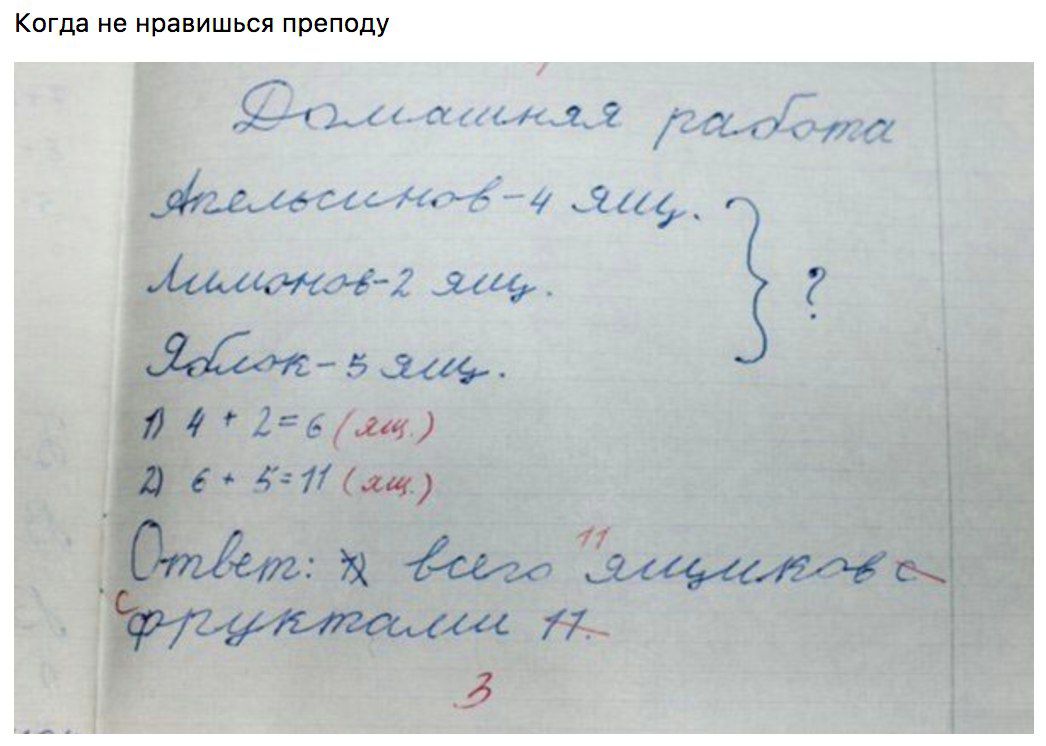 Когда не нравишься преподу
Домашняя работа
Апельсинов-4 ящ.
Лимонов-2 ящ.
Яблок-5 ящ.
?
1) 4 + 2=6 (ящ.)
2) 6 + 5=11 (ящ.)
Ответ: всего 11 ящиков с
с фруктами 11.
3